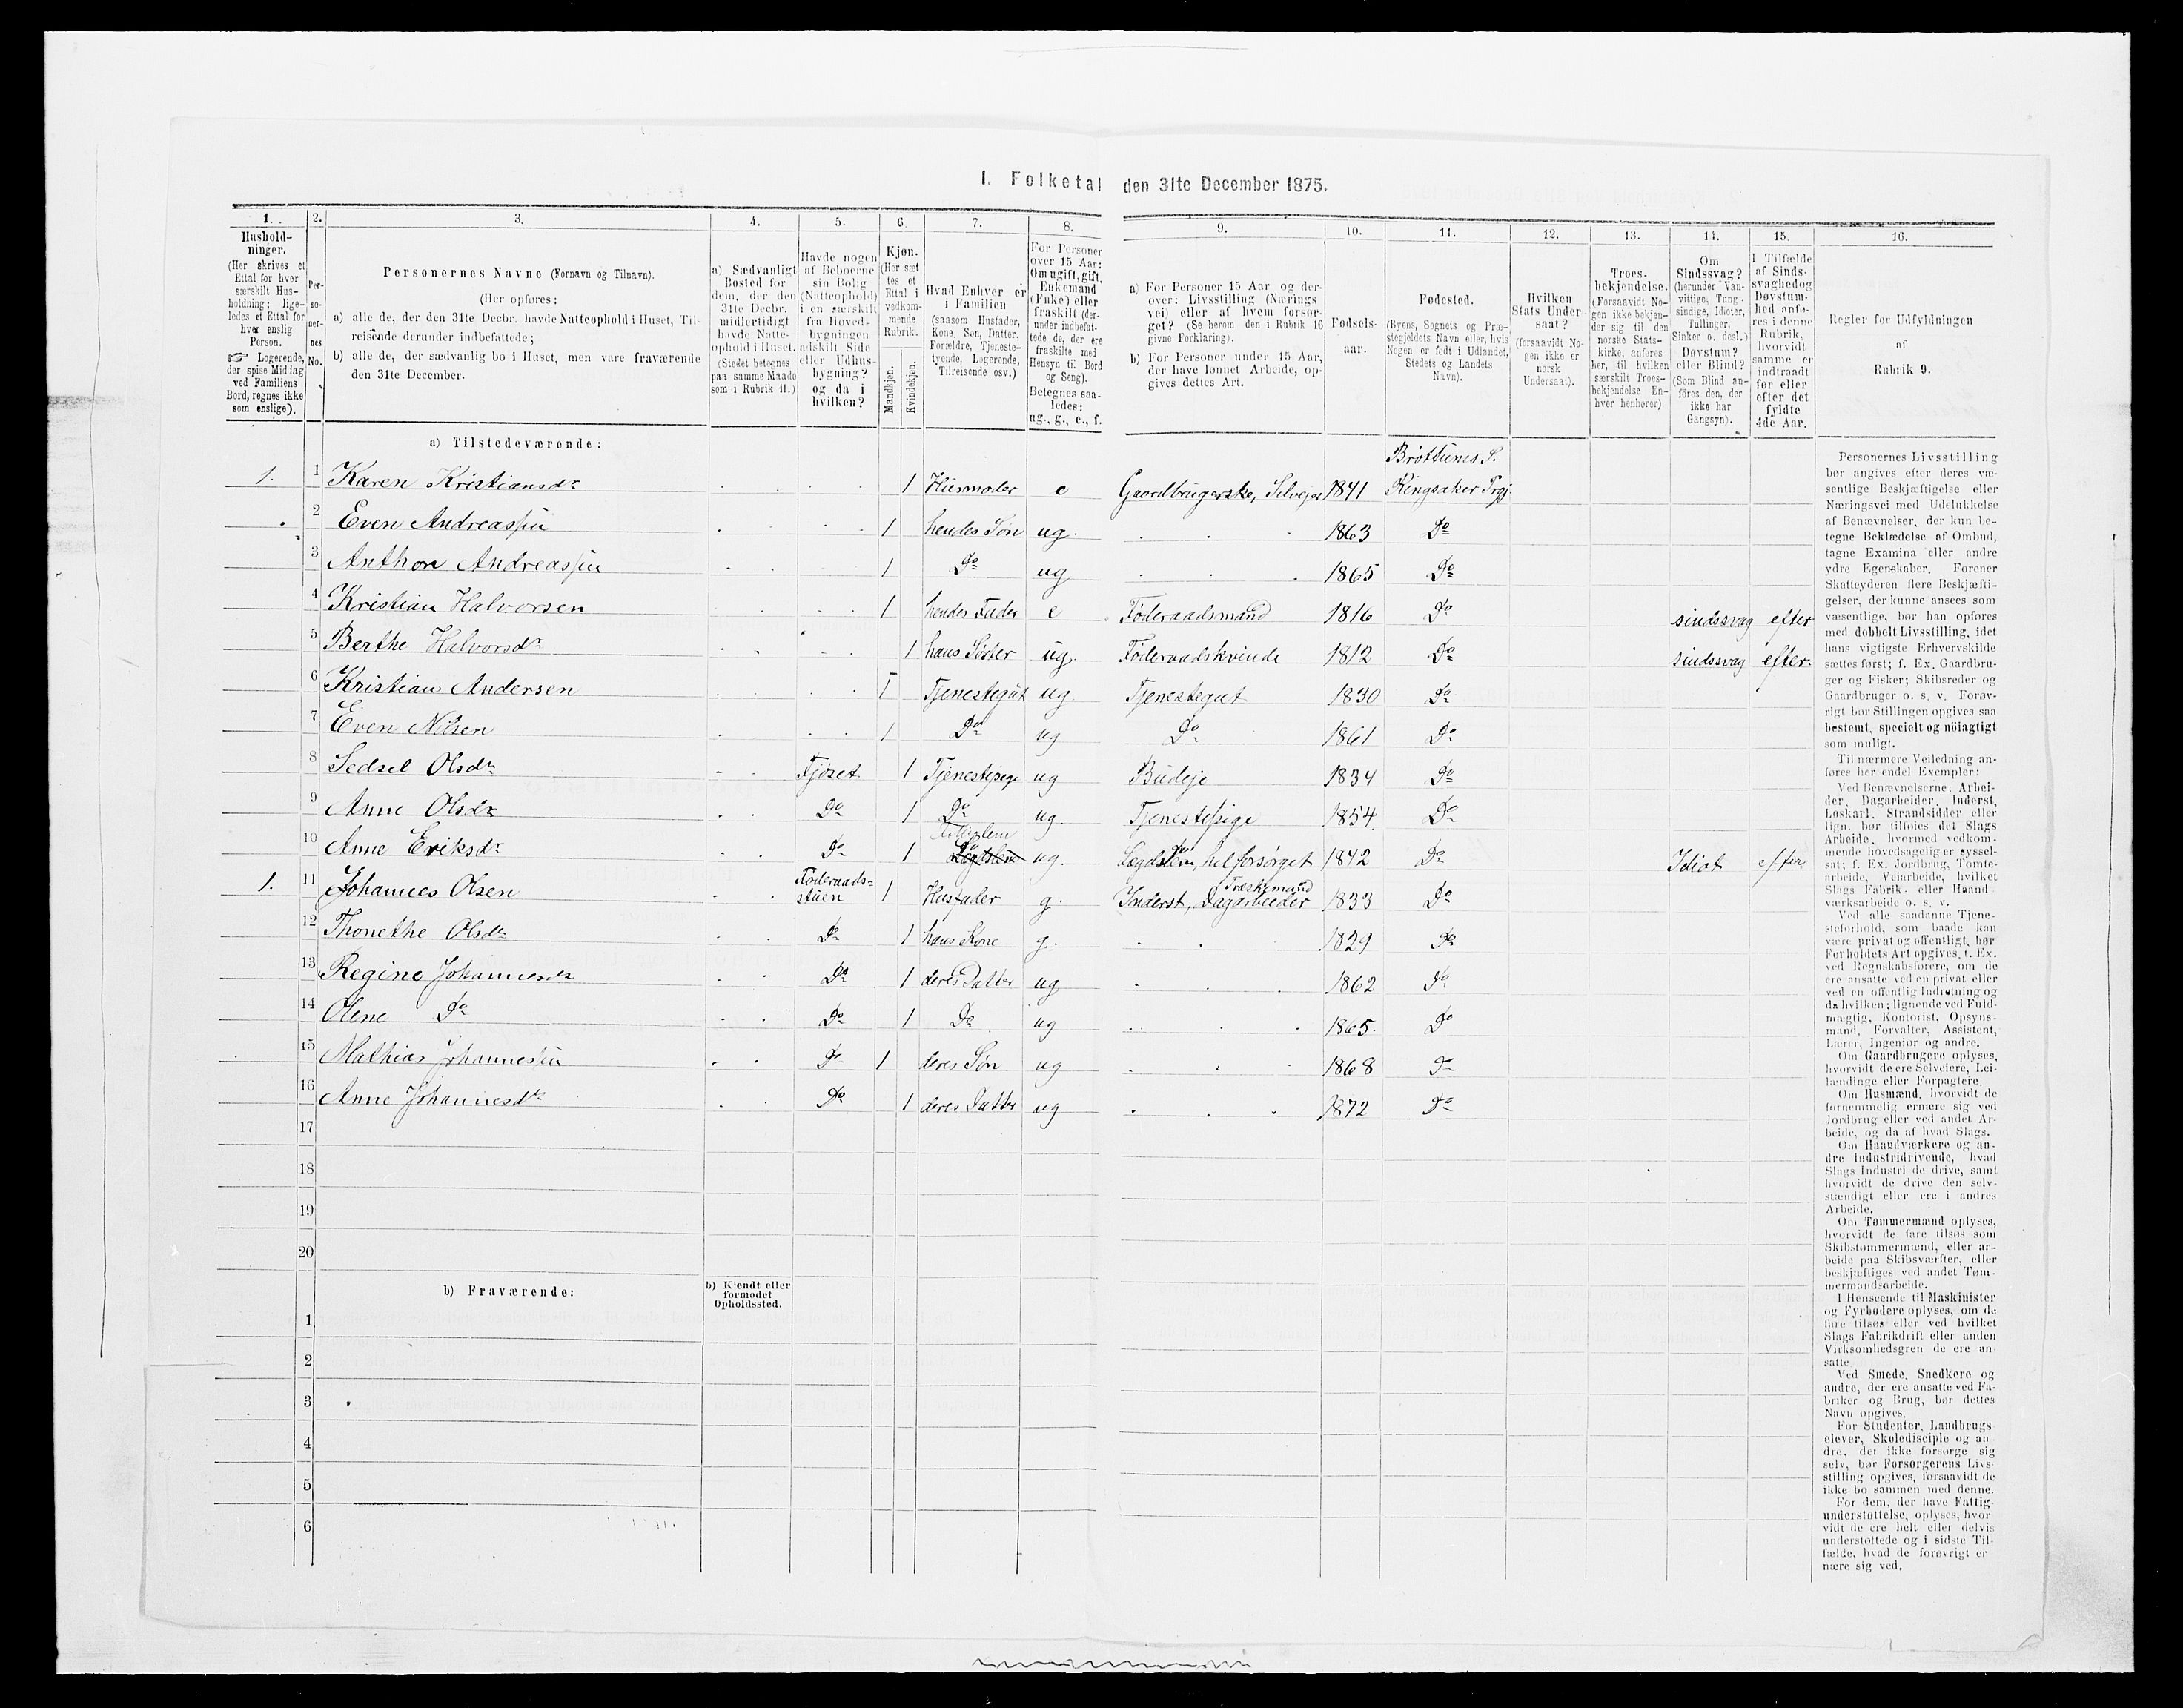 I. Folketal den 31te December 1875.
1. 2. 3. 4. 5. 6. 7. 8. 9. 10. 11. 12. 13. 14. 15. 16.
Hushold-
ninger.
(Her skrives et
Ettal for hver
særskilt Hus-
holdning; lige-
ledes et Ettal for
hver enslig
Person.
☞ Logerende,
der spise Middag
ved Familiens
Bord, regnes ikke
som enslige).
Per-
so-
ner-
nes
No.
Personernes Navne (Fornavn og Tilnavn).
(Her opføres:
a) alle de, der den 31te Decbr. havde Natteophold i Huset, Til-
reisende derunder indbefattede;
b) alle de, der sædvanlig bo i Huset, men vare fraværende
den 31te December.
a) Sædvanligt
Bosted for
dem, der den
31te Decbr.
midlertidigt
havde Natte-
ophold i Huset.
(Stedet betegnes
paa samme Maade
som i Rubrik 11.)
Havde nogen
af Beboerne
sin Bolig
(Natteophold)
i en særskilt
fra Hoved-
bygningen
adskilt Side
eller Udhus-
bygning?
og da i
hvilken?
Kjøn.
(Her sæt
tes et
Ettal i
vedkom-
mende
Rubrik.
Mandkjøn.
Kvindekjøn.
Hvad Enhver er
i Familien
(saasom Husfader,
Kone, Søn, Datter,
Forældre, Tjeneste-
tyende, Logerende,
Tilreisende osv.)
For Personer
over 15 Aar:
Om ugift, gift,
Enkemand
(Enke) eller
fraskilt (der-
under indbefat-
tede de, der ere
fraskilte med
Hensyn til Bord
og Seng).
Betegnes saa-
ledes:
ug., g., e., f.
a) For Personer 15 Aar og der-
over: Livsstilling (Nærings
vei) eller af hvem forsør-
get? (Se herom den i Rubrik 16
givne Forklaring).
b) For Personer under 15 Aar,
der have lønnet Arbeide, op-
gives dettes Art.
Fødsels-
aar.
Fødested.
(Byens, Sognets og Præ-
stegjeldets Navn eller, hvis
Nogen er født i Udlandet,
Stedets og Landets
Navn).
Hvilken
Stats Under-
saat?
(forsaavidt No-
gen ikke er
norsk
Undersaat).
Troes-
bekjendelse.
(Forsaavidt No-
gen ikke bekjen-
der sig til den
norske Stats-
kirke, anføres
her, til hvilken
særskilt Troes-
bekjendelse En-
hver henhører)
Om
Sindssvag?
(herunder Van-
vittige, Tung-
sindige, Idioter,
Tullinger,
Sinker o. desl.)
Døvstum?
eller Blind?
(Som Blind an-
føres den, der
ikke har
Gangsyn).
I Tilfælde
af Sinds-
svaghed og
Døvstum-
hed anfø-
res i denne
Rubrik,
hvorvidt
samme er
indtraadt
før eller
efter det
fyldte
4de Aar.
Regler for Udfyldningen
af
Rubrik 9.
a) Tilstedeværende:
Brøttunes S.
1. 1 Karen Kristiansdr 1 Husmoder e Gaardbrugerske, Selveier 1841 Ringsaker Prgj.
2 Even Andreassen 1 hendes Søn ug. 1863 Do
3 Anthon Andreassen 1 Do ug 1865 Do
4 Kristian Halvorsen 1 hendes Fader e Føderaadsmand 1816 Do sindssvag efter
5 Berthe Halvorsdr 1 hans Søster ug. Føderaadskvinde 1812 Do sindssvag efter.
6 Kristian Andersen 1 Tjenestegut ug Tjenestegut 1830 Do
7 Even Nilsen 1 Do ug Do 1861 Do
8 Sedsel Olsdr Fjøset 1 Tjenestepige ug Budeje 1834 Do
9 Anne Olsdr Do 1 Do ug. Tjenestepige 1854 Do
10 Anne Eriksdr Do 1 Lægdslem ug. Lægdslem, hel forsørget 1842 Do Idiot efter
1. 11 Johannes Olsen Føderaads-
stuen 1 Husfader g. Inderst, Dagarbeider Træskemand 1833 Do
12 Thonethe Olsdr Do 1 hans Kone g. 1829 Do
13 Regine Johannesdr Do 1 deres Datter ug 1862 Do
14 Olene Do Do 1 Do ug 1865. Do
15 Mathias Johannessen Do 1 deres Søn ug 1868 Do
16 Anne Johannesdr Do 1 deres Datter ug 1872 Do
17
18
19
20
b) Fraværende:
b) Kjendt eller
formodet
Opholdssted.
1
2
3
4
5
6
Personernes Livsstilling
bør angives efter deres væ-
sentlige Beskjæftigelse eller
Næringsvei med Udelukkelse
af Benævnelser, der kun be-
tegne Beklædelse af Ombud,
tagne Examina eller andre
ydre Egenskaber. Forener
Skatteyderen flere Beskjæfti-
gelser, der kunne ansees som
væsentlige, bør han opføres
med dobbelt Livsstilling, idet
hans vigtigste Erhvervskilde
sættes først; f. Ex. Gaardbru-
ger og Fisker; Skibsreder og
Gaardbruger o. s. v. Forøv-
rigt bør Stillingen opgives saa
bestemt, specielt og nøiagtigt
som muligt.
Til nærmere Veiledning an-
føres her endel Exempler:
Ved Benævnelserne: Arbei-
der, Dagarbeider, Inderst,
Løskarl, Strandsidder eller
lign. bør tilføies det Slags
Arbeide, hvormed vedkom-
mende hovedsagelig er syssel-
sat; f. Ex. Jordbrug, Tomte-
arbeide, Veiarbeide, hvilket
Slags Fabrik- eller Haand-
værksarbeide o. s. v.
Ved alle saadanne Tjene-
steforhold, som baade kan
være privat og offentligt, bør
Forholdets Art opgives, f. Ex.
ved Regnskabsførere, om de
ere ansatte ved en privat eller
ved en offentlig Indretning og
da hvilken; lignende ved Fuld-
mægtig, Kontorist, Opsyns-
mand, Forvalter, Assistent,
Lærer, Ingeniør og andre.
Om Gaardbrugere oplyses,
hvorvidt de ere Selveiere, Lei-
lændinge eller Forpagtere.
Om Husmænd, hvorvidt de
fornemmelig ernære sig ved
Jordbrug eller ved andet Ar-
beide, og da af hvad Slags.
Om Haandværkere og an-
dre industridrivende, hvad
Slags Industri de drive, samt
hvorvidt de drive den selv-
stændigt eller ere i andres
Arbeide.
Om Tømmermænd oplyses,
hvorvidt de fare tilsøs som
Skibstømmermænd, eller ar-
beide paa Skibsværfter, eller
beskjæftiges ved andet Tøm-
mermandsarbeide.
I Henseende til Maskinister
og Fyrbødere oplyses, om de
fare tilsøs eller ved hvilket
Slags Fabrikdrift eller anden
Virksomhedsgren de ere an-
satte.
Ved Smede, Snedkere og
andre, der ere ansatte ved Fa-
briker og Brug, bør dettes
Navn opgives.
For Studenter, Landbrugs-
elever, Skoledisciple og an-
dre, der ikke forsørge sig
selv, bør Forsørgerens Livs-
stilling opgives, forsaavidt de
ikke bo sammen med denne.
For dem, der have Fattig-
understøttelse, oplyses, hvor-
vidt de ere helt eller delvis
understøttede og i sidste Til-
fælde, hvad de forøvrigt er-
nære sig ved.